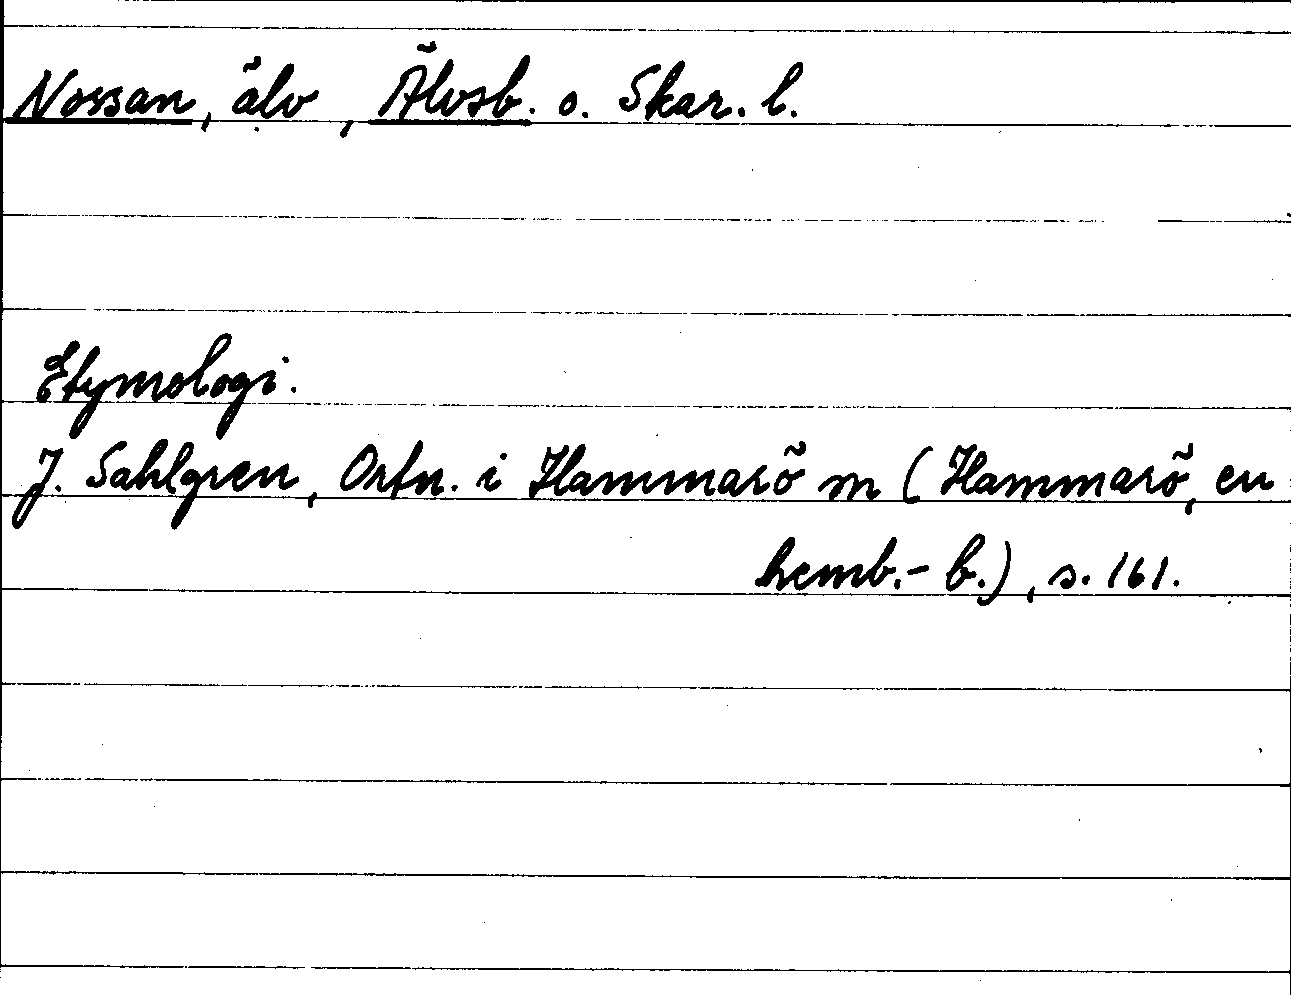 Nossan, älv, Älvsb. o. Skar. l.
Etymologi.
J. Sahlgren, Ortn. i Hammarö sn (Hammarö, en
hemb.-b.), s. 161.